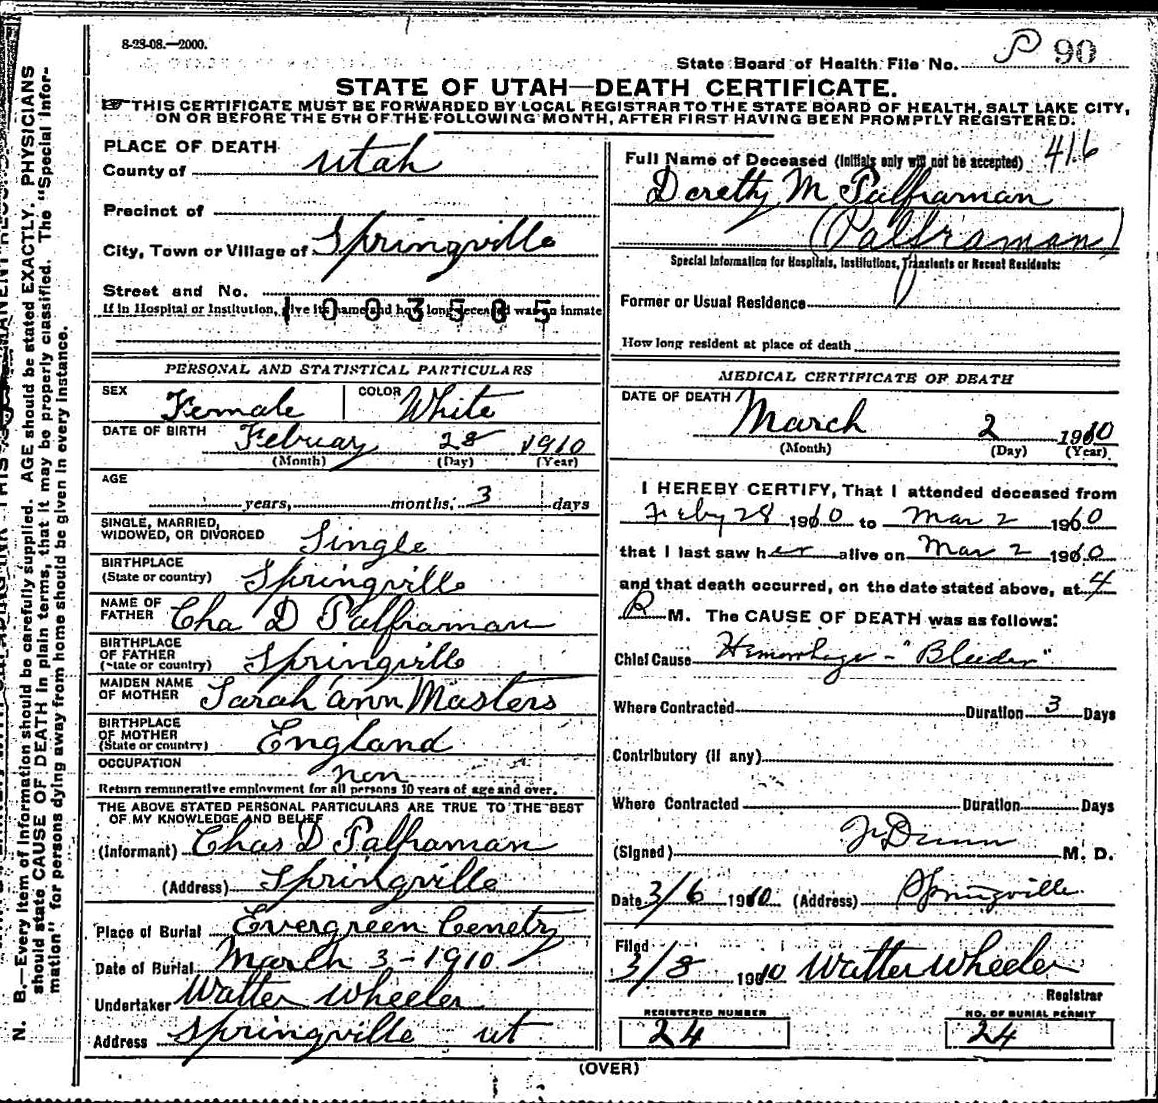 8-23-08.—2000.
State Board of Health File No. P 90
STATE OF UTAH—DEATH CERTIFICATE.
☞THIS CERTIFICATE MUST BE FORWARDED BY LOCAL REGISTRAR TO THE STATE BOARD OF HEALTH, SALT LAKE CITY,
ON OR BEFORE THE 5TH OF THE FOLLOWING MONTH, AFTER FIRST HAVING BEEN PROMPTLY REGISTERED.
PLACE OF DEATH
County of Utah
Precinct of
City, Town or Village of Springville
Street and No.
1003505
If in Hospital or Institution, give its name and how long deceased was an inmate
PERSONAL AND STATISTICAL PARTICULARS
SEX Female COLOR White
DATE OF BIRTH February 28 1910
(Month) (Day) (Year)
AGE
years, months, 3 days
SINGLE, MARRIED,
WIDOWED, OR DIVORCED Single
BIRTHPLACE
(State or country) Springville
NAME OF
FATHER Cha D Palframan
BIRTHPLACE
OF FATHER
(State or country) Springville
MAIDEN NAME
OF MOTHER Sarah ann Masters
BIRTHPLACE
OF MOTHER
(State or country) England
OCCUPATION non
Return remunerative employment for all persons 10 years of age and over.
THE ABOVE STATED PERSONAL PARTICULARS ARE TRUE TO THE BEST
OF MY KNOWLEDGE AND BELIEF
(Informant) Chas D Palframan
(Address) Springville
Place of Burial Evergreen Cemetry
Date of Burial March 3-1910
Undertaker Walter Wheeler
Address Springville ut
Full Name of Deceased (Initials only will not be accepted) 416
Dorethy M Palframan
(Palframan)
Special Information for Hospitals, Institutions, Transients or Recent Residents:
Former or Usual Residence
How long resident at place of death
MEDICAL CERTIFICATE OF DEATH
DATE OF DEATH
March 2 1910
(Month) (Day) (Year)
I HEREBY CERTIFY, That I attended deceased from
Feby 28 1910 to Mar 2 1910
that I last saw her alive on Mar 2 1910
and that death occurred, on the date stated above, at 4
P M. The CAUSE OF DEATH was as follows:
Chief Cause Hemorrhage - "Bleeder"
Where Contracted Duration 3 Days
Contributory (if any)
Where Contracted Duration Days
(Signed) Dunn M. D.
Date 3/6 1910 (Address) Springville
Filed
3/8 1910 Walter Wheeler
Registrar
REGISTERED NUMBER
24
NO. OF BURIAL PERMIT
24
(OVER)
N. B.—Every item of information should be carefully supplied. AGE should be stated EXACTLY. PHYSICIANS
should state CAUSE OF DEATH in plain terms, that it may be properly classified. The "Special Infor-
mation" for persons dying away from home should be given in every instance.